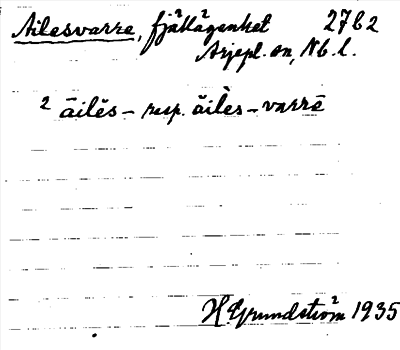 Ailesvarre, fjällägenhet 27b2
Arjepl. sn, Nb. l.
2 āilēs – resp. āilès – varrē
H. Grundström 1935